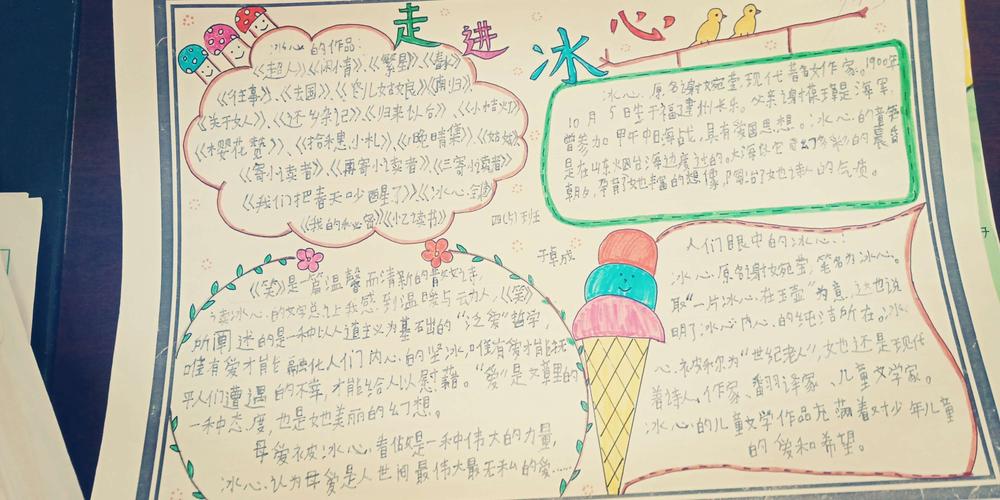 走进冰心
冰心的作品:
《超人》《闲情》、《繁星》、《春水》
《往事》、《去国》、《空儿姑娘》《南归》、
《关于女人》、《还乡杂记》、《归来以后》、《小桔灯》
《樱花赞》、《拾穗小札》、《晚晴集》、《姑姑》
《寄小读者》《再寄小读者》《三寄小读者》
《我们把春天吵醒了》《冰心全集》
《我的秘密》《忆读书》
四(5)班
冰心、原名谢婉莹,现代著名作家。1900年
10月5日生于福建州长乐。父亲谢葆璋是海军,
曾参加甲午中日海战,具有爱国思想。冰心的童年
是在山东烟台海边度过的。大海以它变幻多彩的晨昏
朝夕,孕育了她丰富的想像,陶冶了她诗人的气质。
《笑》是一篇温馨而清新的散文诗,
读冰心的文字总让我感到温暖与动人,《笑》
所阐述的是一种以人道主义为基础的“泛爱”哲学,
唯有爱才能融化人们内心的坚冰,唯有爱才能抚
平人们遭遇的不幸,才能给人以慰藉。“爱”是文章里的
一种态度,也是她美丽的幻想。
母爱被冰心看做是一种伟大的力量,
冰心认为母爱是人世间最伟大最无私的爱……
人们眼中的冰心!
冰心原名谢婉莹,笔名为冰心。
取“一片冰心在玉壶”为意,这也说
明了冰心内心的纯洁所在。冰
心被称为“世纪老人”,她还是现代
著诗人、作家、翻译家、儿童文学家。
冰心的儿童文学作品充满着对少年儿童
的爱和希望。